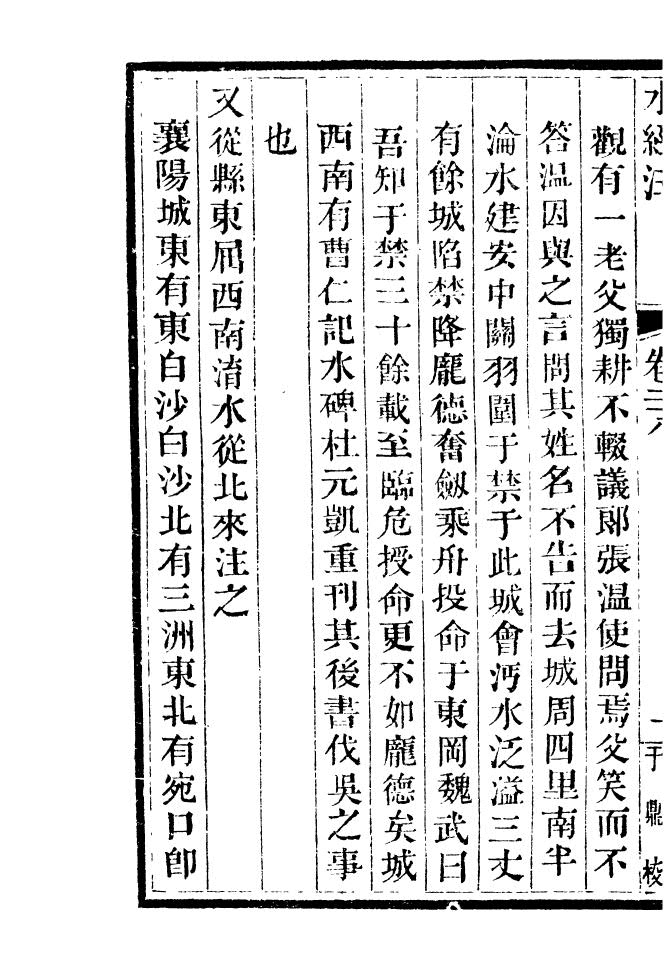 水經注
卷二八
觀有一老父獨耕不輟議郞張温使問焉父笑而不
答温因與之言問其姓名不告而去城周四里南半
淪水建安中關羽圍于禁于此城會沔水泛溢三丈
有餘城陷禁降龐德奮劔乘舟投命于東岡魏武曰
吾知于禁三十餘載至臨危授命更不如龐德矣城
西南有曹仁記水碑杜元凱重刊其後書伐吳之事
也
又從縣東屈西南淯水從北來注之
襄陽城東有東白沙白沙北有三洲東北有宛口卽